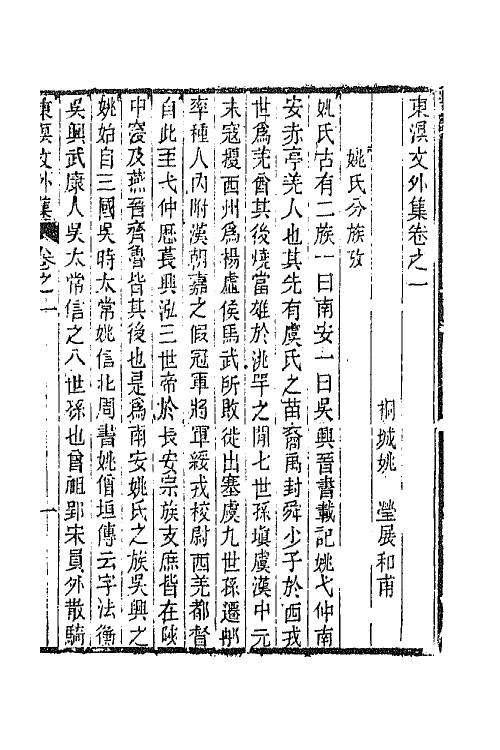 東溟文外集卷之一
桐城姚 瑩展和甫
姚氏分族攷
姚氏古有二族一曰南安一曰吳興晉書載記姚弋仲南
安赤亭羌人也其先有虞氏之苗裔禹封舜少子於西戎
世爲羌酋其後燒當雄於洮罕之閒七世孫塡虞漢中元
末寇擾西州爲楊虛侯馬武所敗徙出塞虞九世孫遷那
率種人內附漢朝嘉之假冠軍將軍綏戎校尉西羌都督
自此至弋仲歷萇興泓三世帝於長安宗族支庶皆在陝
中寖及燕晉齊魯皆其後也是爲南安姚氏之族吳興之
姚始自三國吳時太常姚信北周書姚僧垣傳云字法衛
吳興武康人吳太常信之八世孫也曾祖郢宋員外散騎
東溟文外集 卷之一 一